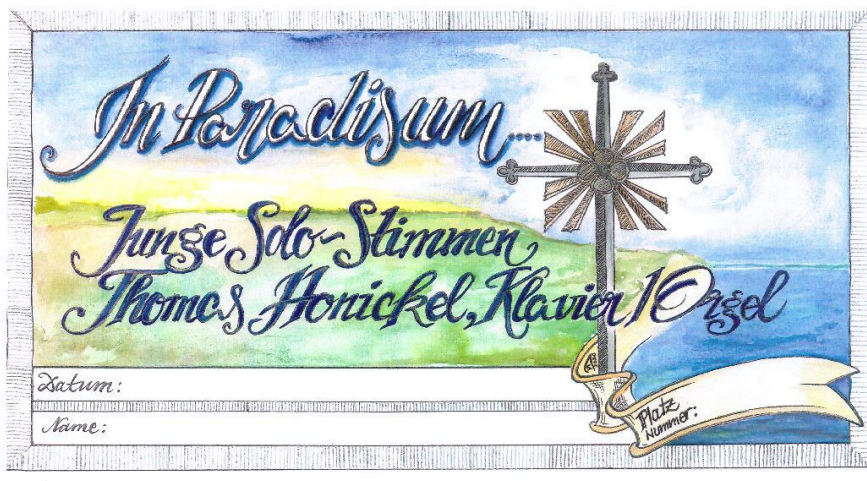 In Paradisum....
Junge Solo-Stimmen
Thomas Honickel, Klavier/Orgel
Datum:
Name:
Platz
Nummer: